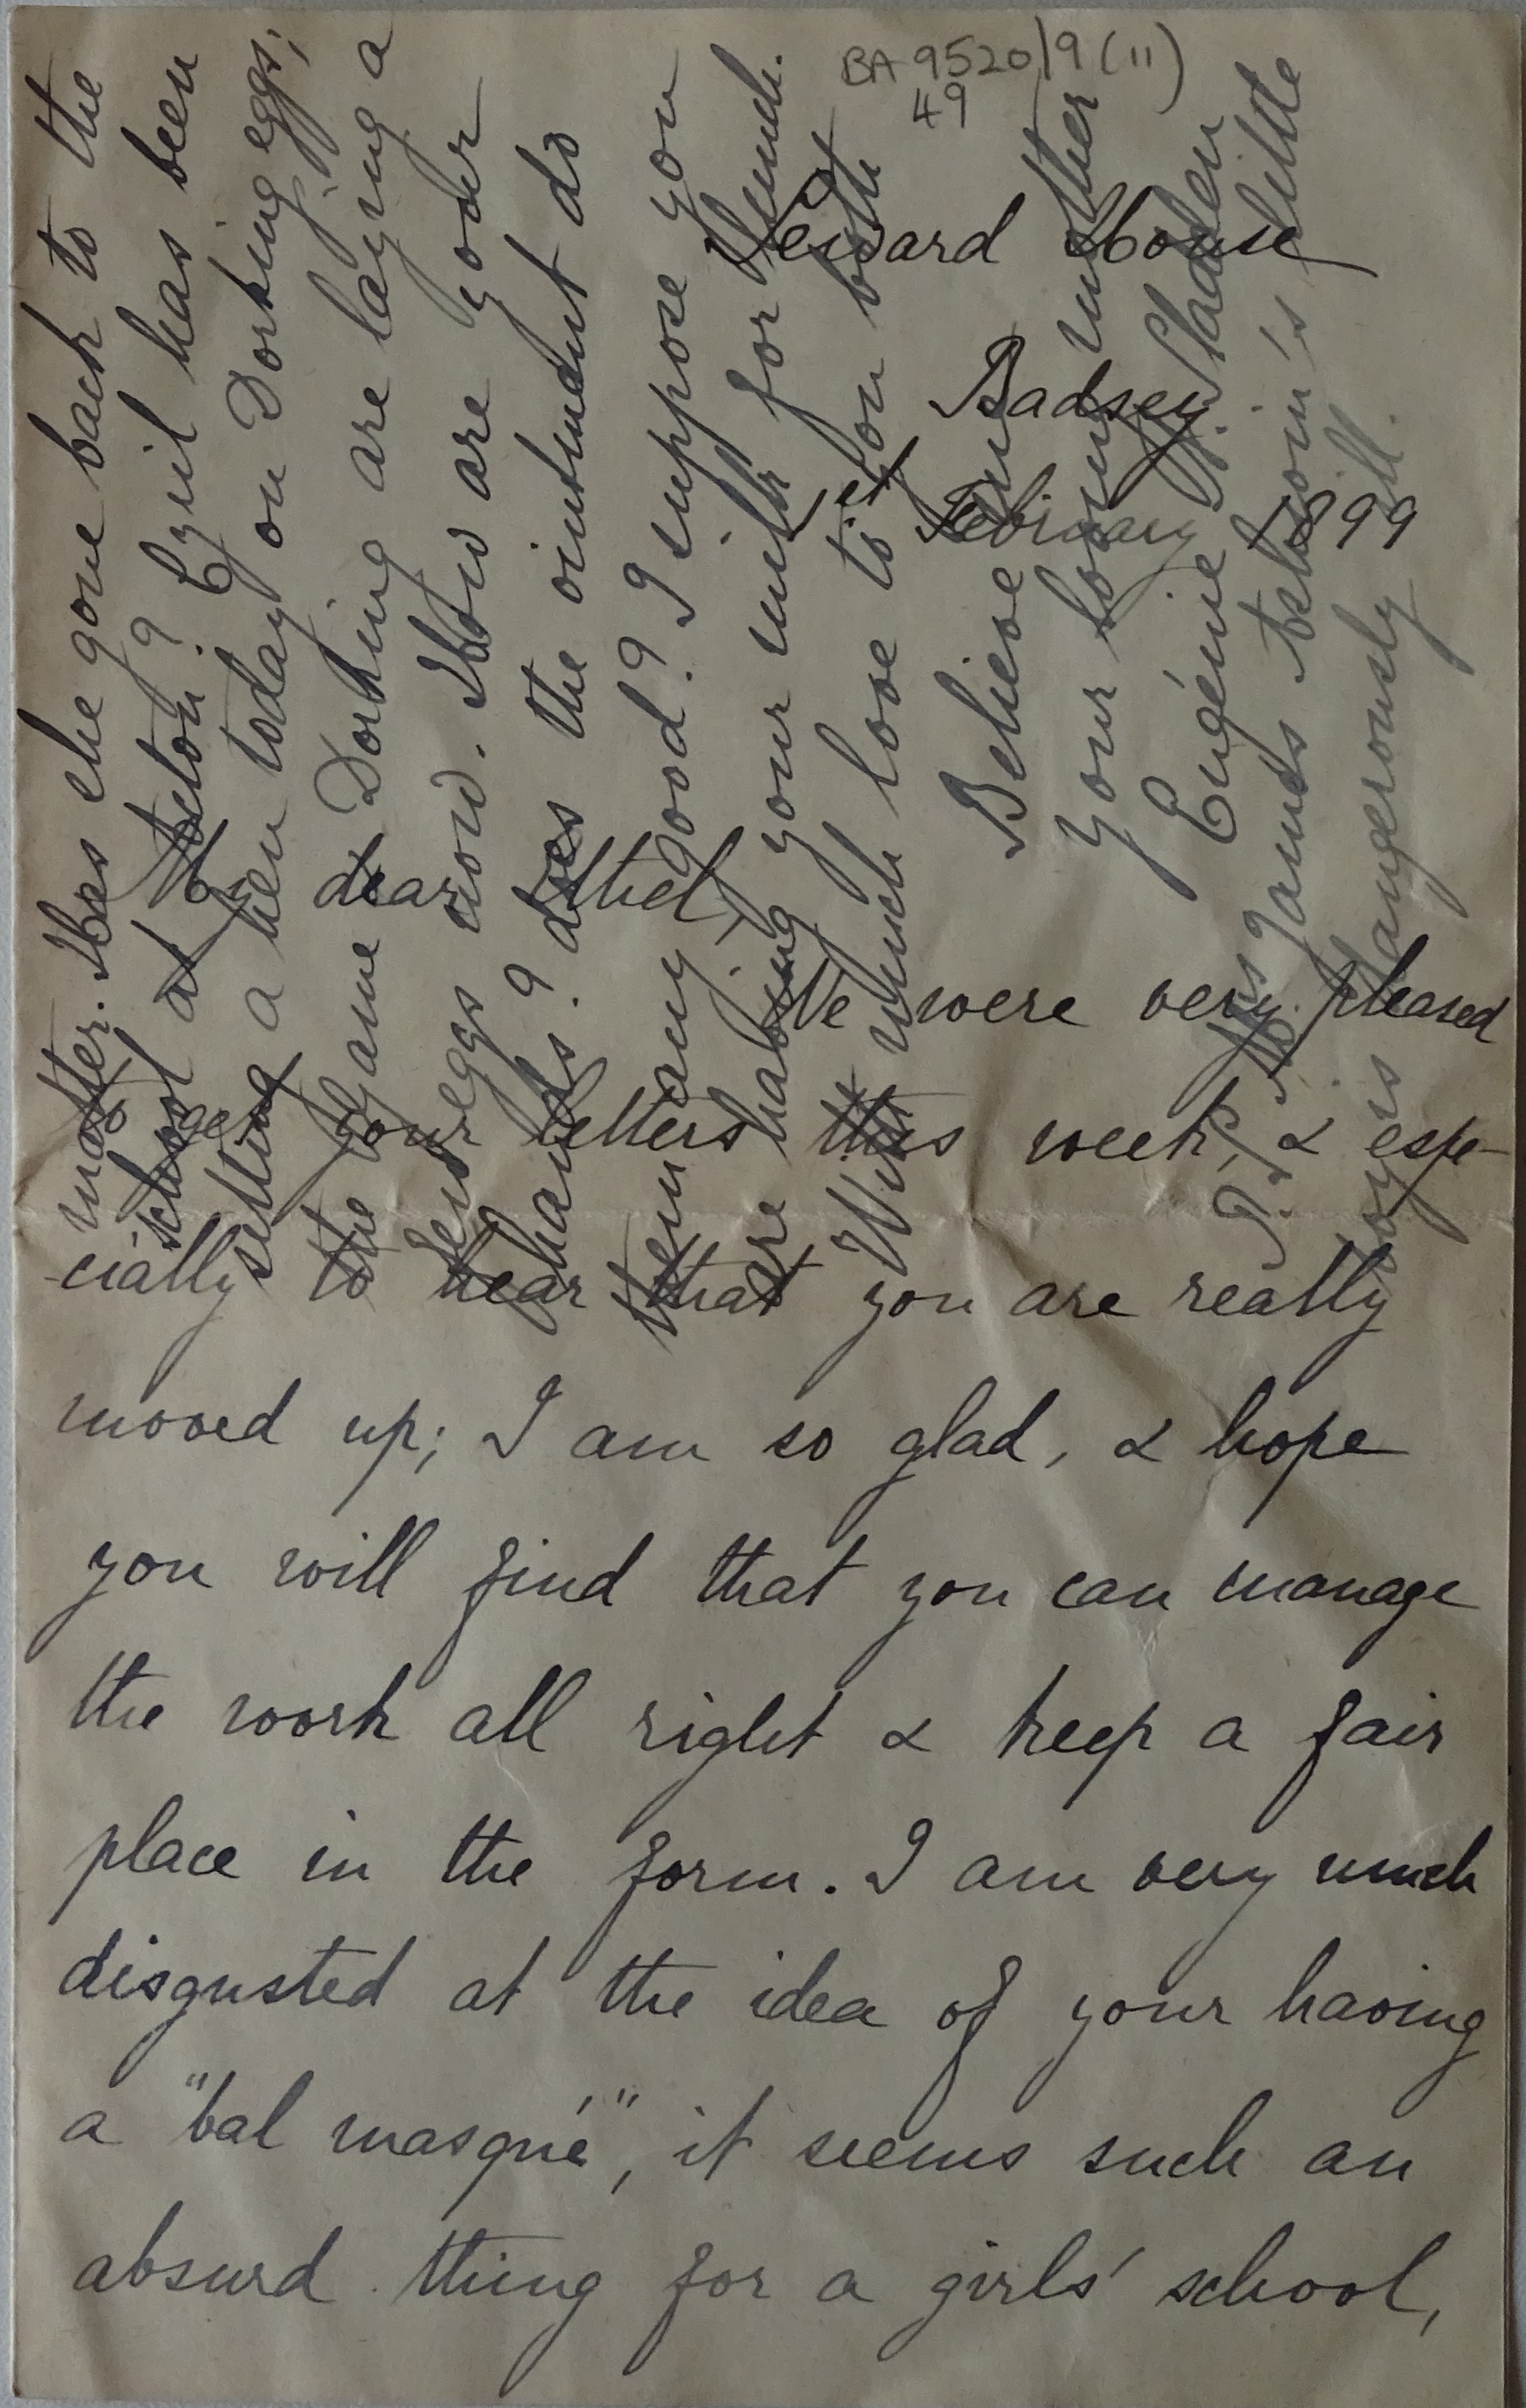 BA 9520/9 (11)
49
Seward House
Badsey
1st February 1899
My dear Ethel,
We were very pleased
to get your letters this week, & espe-
-cially to hear that you are really
moved up; I am so glad, & hope
you will find that you can manage
the work all right & keep a fair
place in the form. I am very much
disgusted at the idea of your having
a "bal masqué", it seems such an
absurd thing for a girls' school,
matter. Has she gone back to the
school at Acton? Cyril has been
setting a hen today on Dorking eggs;
the Game Dorking are laying a
few eggs now. How are your
hands? does the ointment do
them any good? I suppose you
are having your milk for lunch.
With much love to you both
Believe me
your loving mother
Eugénie J. Sladden
P.S. Mrs James Ashwin's little
boy is dangerously ill.